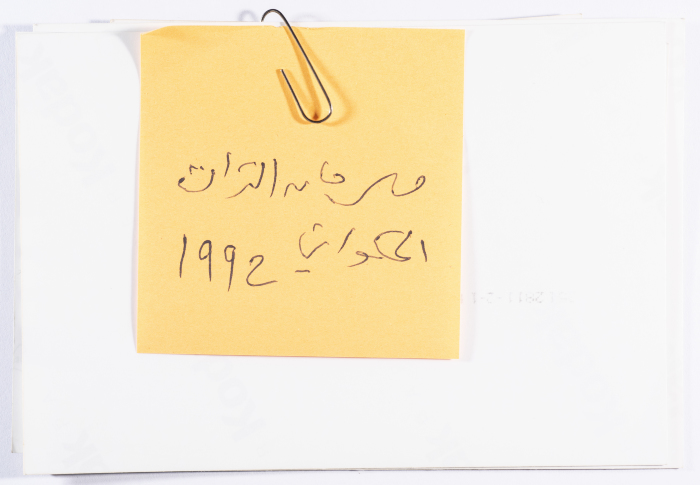 مهرجان التراث
الحكواتي 1992